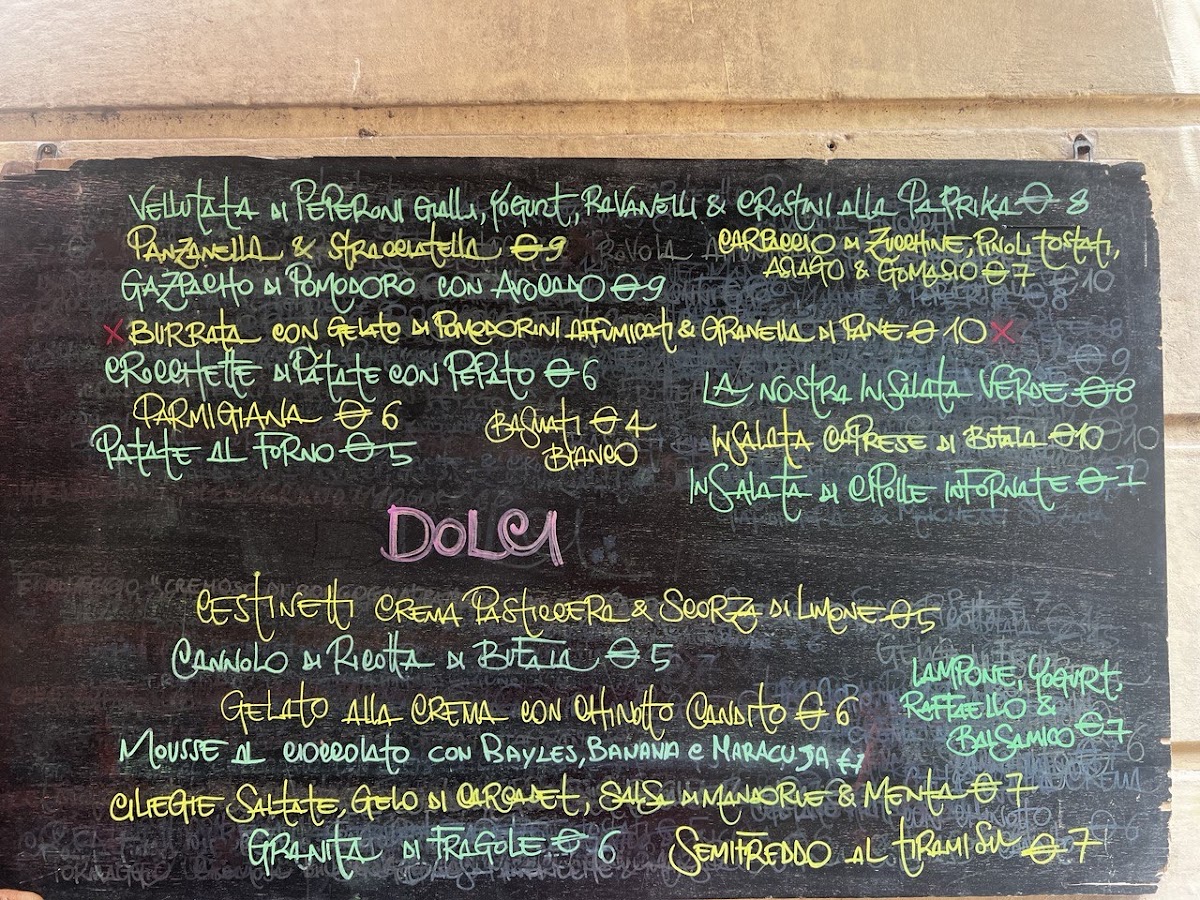 VELLUTATA DI PEPERONI GIALLI, YOGURT, RAVANELLI & CROSTINI ALLA PAPRIKA € 8
PANZANELLA & STRACCIATELLA € 9
CARPACCIO DI ZUCCHINE, PINOLI TOSTATI,
ASIAGO & GOMASIO € 7
GAZPACHO DI POMODORO CON AVOCADO € 9
X BURRATA CON GELATO DI POMODORINI AFFUMICATI & GRANELLA DI PANE € 10 X
CROCCHETTE DI PATATE CON PEPATO € 6
LA NOSTRA INSALATA VERDE € 8
PARMIGIANA € 6
BASMATI € 4
BIANCO
INSALATA CAPRESE DI BUFALA € 10
PATATE AL FORNO € 5
INSALATA DI CIPOLLE INFORNATE € 7
DOLCI
CESTINETTI CREMA PASTICCERA & SCORZA DI LIMONE € 5
CANNOLO DI RICOTTA DI BUFALA € 5
LAMPONE, YOGURT,
RAFFAELLO &
BALSAMICO € 7
GELATO ALLA CREMA CON CHINOTTO CANDITO € 6
MOUSSE AL CIOCCOLATO CON BAYLES, BANANA E MARACUJA € 7
CILIEGIE SALTATE, GELO DI CARCADET, SALSA DI MANDORLE & MENTA € 7
GRANITA DI FRAGOLE € 6
SEMIFREDDO AL TIRAMISU € 7